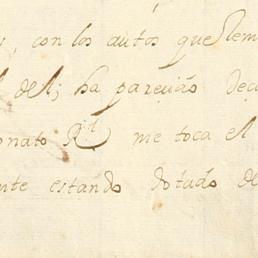 , con los autos que
del; ha pareçido
onato R.l me toca el
nte estando dotado de